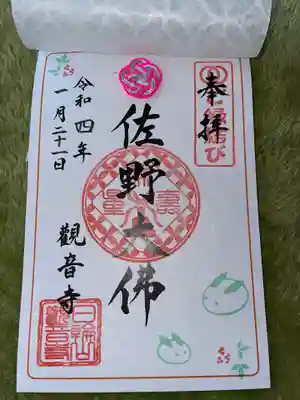 奉拝
縁結び
佐野大佛
令和四年
一月二十一日
觀音寺